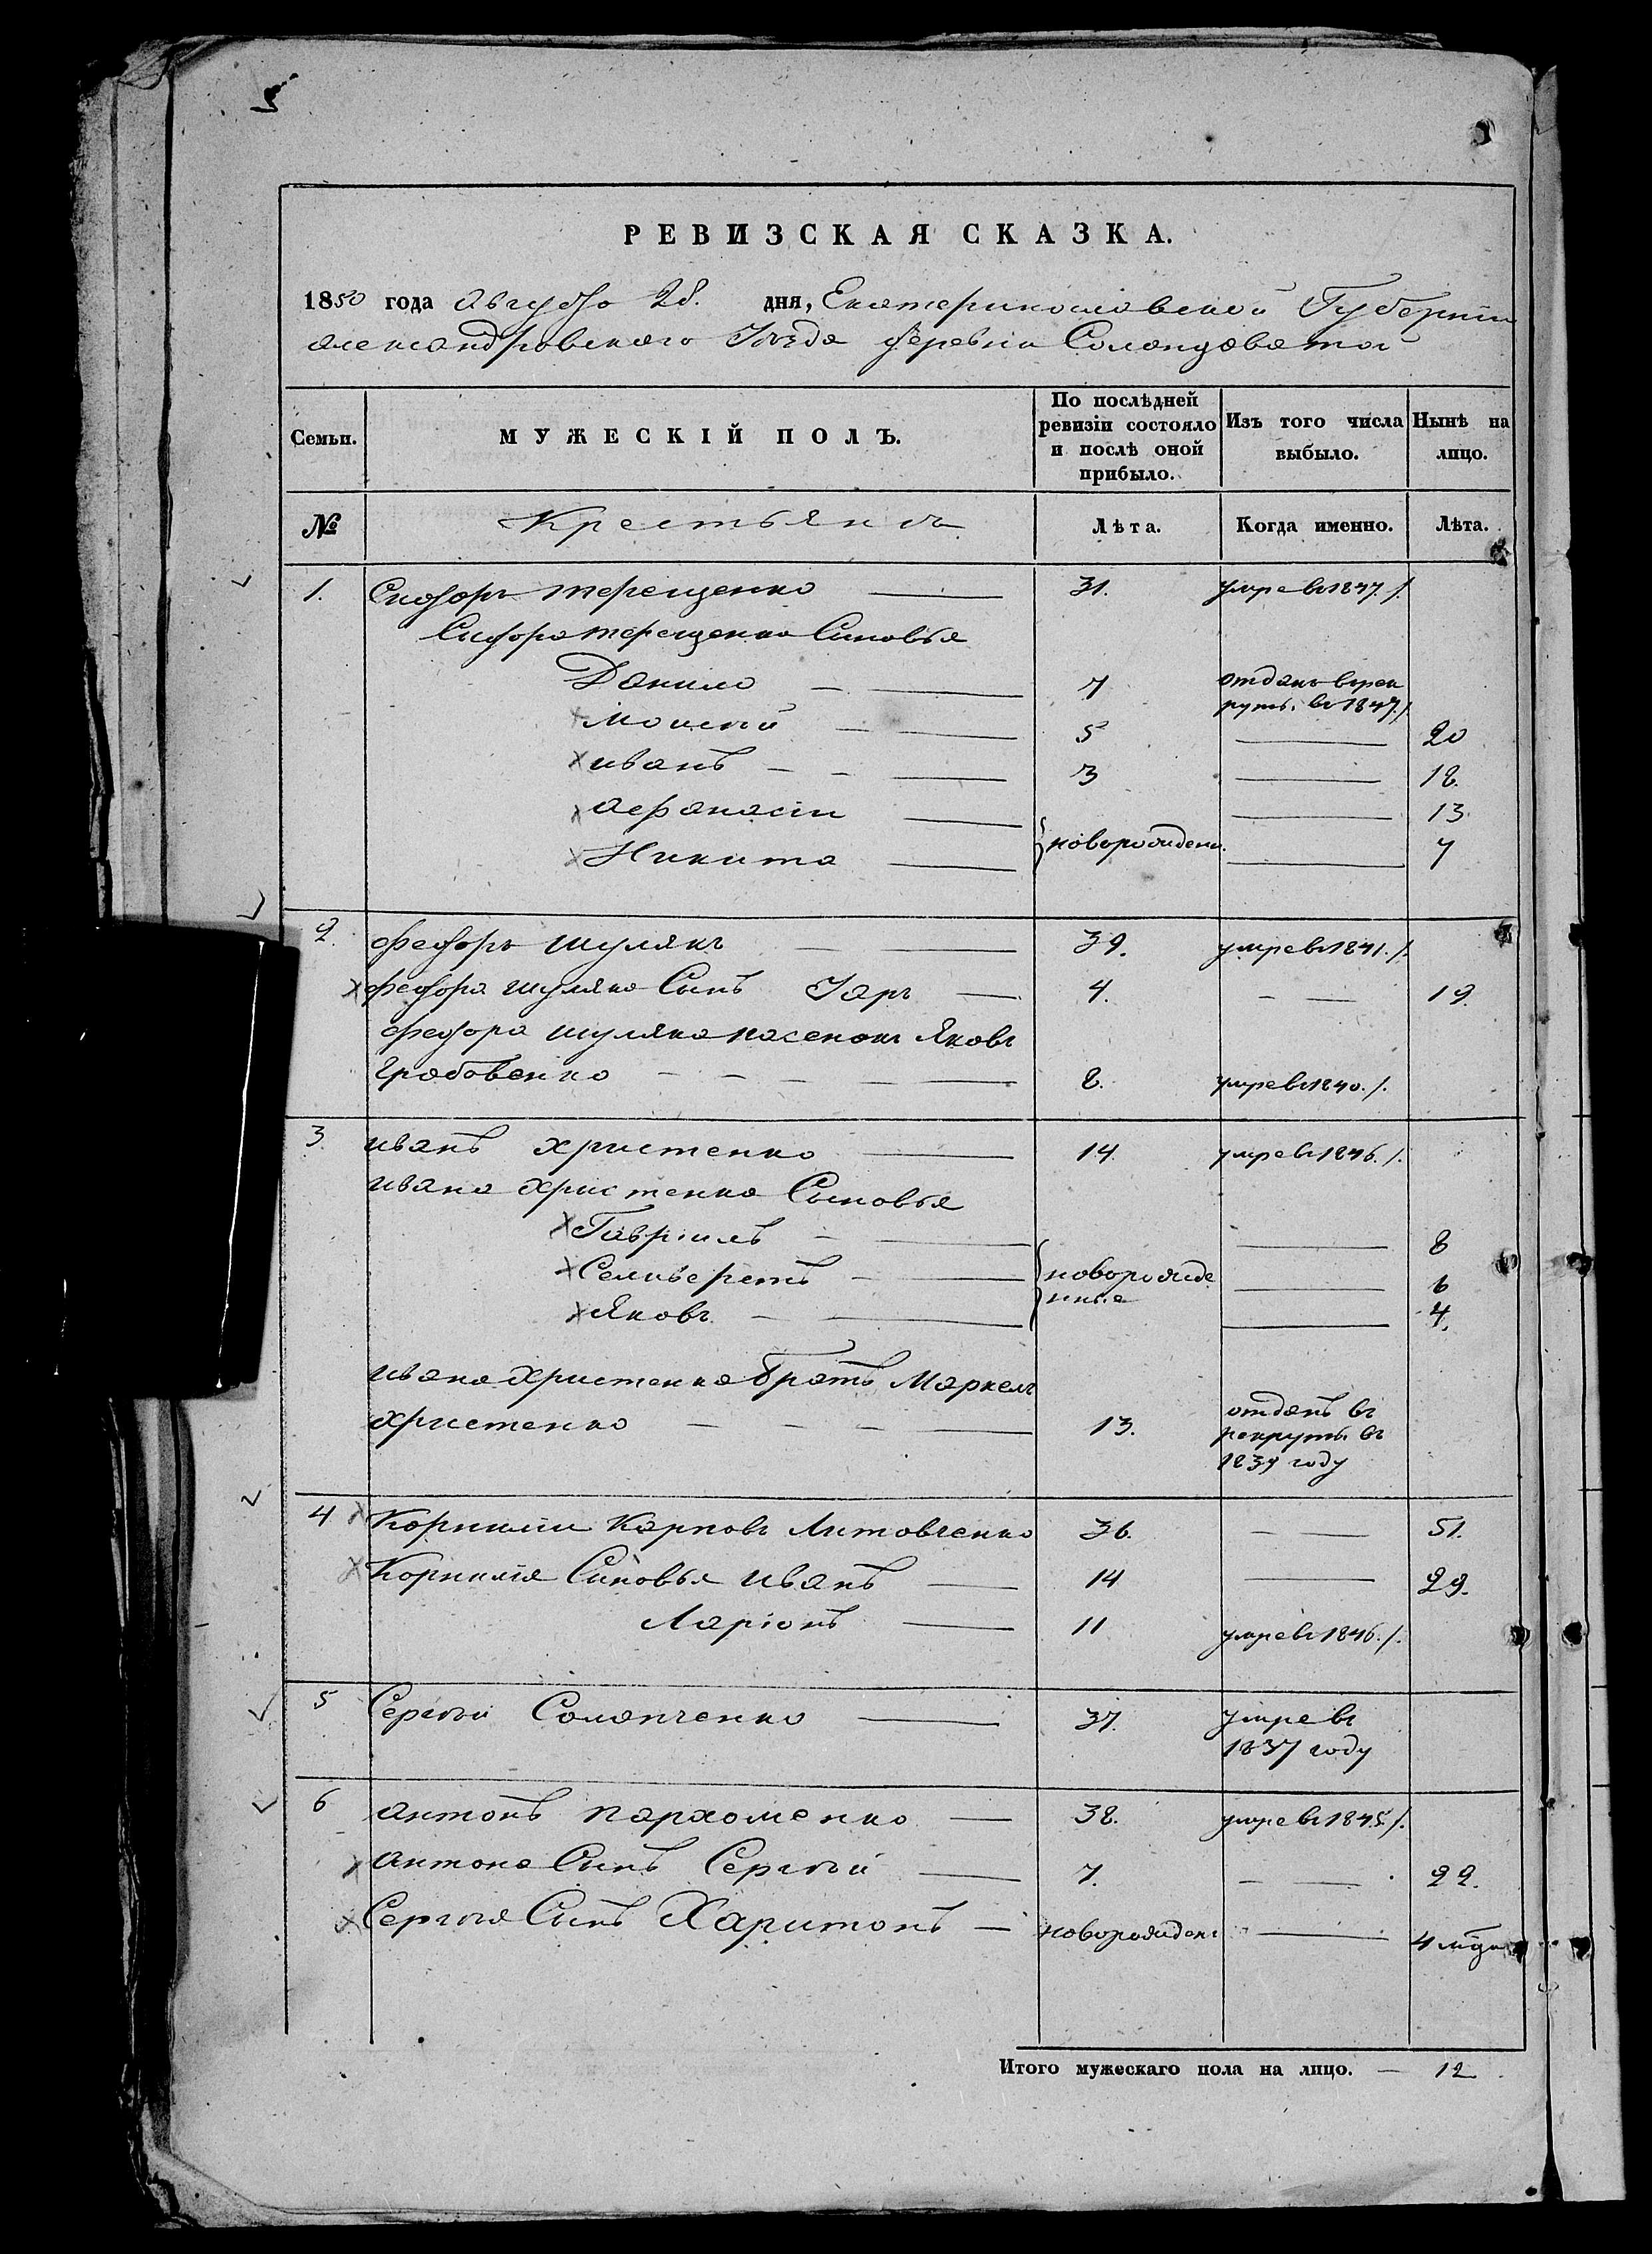 5
РЕВИЗСКАЯ СКАЗКА.
1850 года Августа 28. дня, Екатеринославской Губернiи
Александровскаго Уѣзда Деревни Солонцоватой
Семьи. МУЖЕСКIЙ ПОЛЪ. По послѣдней ревизiи состояло и послѣ оной прибыло. Изъ того числа выбыло. Нынѣ на лицо.
№ Крестьянъ Лѣта. Когда именно. Лѣта.
1. Сидоръ Терещенко 31. умре въ 1847.
Сидора Терещенка Синовья
Данило 7 отданъ врек
рутъ. въ 1847.
Моисей 5 20
Иванъ 3 18.
Афанасiи 13
новорожден.
Никита 7
2. Федоръ Шулякъ 39. умре въ 1841.
Федора Шуляка Сынъ Уаръ 4. 19.
Федора Шуляка пасенокъ Яковъ
Грабовенко 8. умре въ 1840.
3. Иванъ Христенко 14. умре въ 1846.
Ивана Христенка Сыновья
Гаврiилъ 8
Селиверстъ новорожде 6
нные
Яковъ 4.
Ивана Христенка Братъ Маркелъ
Христенко 13. отданъ въ
рекруты въ
1839 году
4 Корнилiи Карповъ Литовченко 36. 51.
Корнилiя Синовья Иванъ 14 29.
Ларiонъ 11 умре въ 1846.
5 Сергѣй Соланченко 37. умре въ
1837 году
6 Антонъ Пархоменко 38. умре въ 1845.
Антона Сынъ Сергѣй 7. 22.
Сергѣя Сынъ Харитонъ новорожденъ 4 мца
Итого мужескаго пола на лицо. — 12